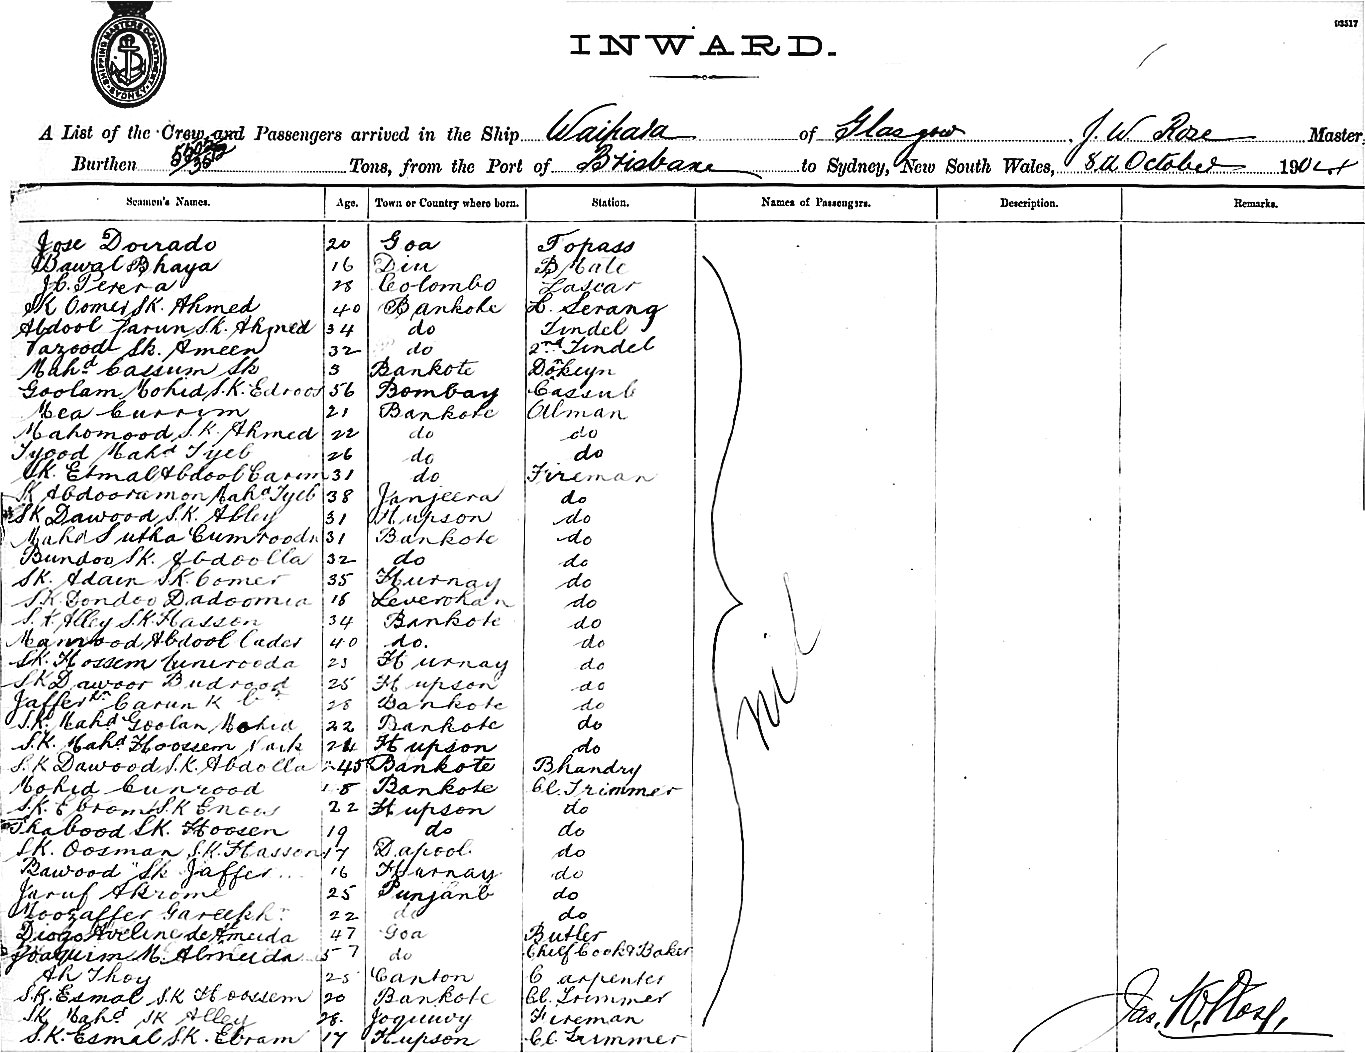 93517
SHIPPING MASTERS DEPARTMENT SYDNEY
INWARD.
A List of the Crew and Passengers arrived in the Ship Waikata of Glasgow J. W. Rose Master,
Burthen Tons, from the Port of Brisbane to Sydney, New South Wales, 8th October 1904
Seamen's Names. Age. Town or Country where born. Station. Names of Passengers. Description. Remarks.
Jose Dourado 20 Goa Topass
Bawal Bhaya 16 Diu B Mate
J.C. Perera 28 Colombo Lascar
SK Oomer SK. Ahmed 40 Bankote D. Serang
Abdool Sk. Ahmed 34 do Tindel
Sk. Ameen 32 do 2nd Tindel
Mahd Cassum Sk 3 Bankote
Goolam Mohid S.K. Edroos 56 Bombay Cassub
Mea Currim 21 Bankote
Mahomood S.K. Ahmed 22 do do
Tyood Mahd Tyeb 26 do do
SK. Esmal Abdool Carim 31 do Fireman
SK Abdooramon Mahd Tyeb 38 Janjeera do
SK Dawood S.K. Alley 31 Hupson do
Mahd 31 Bankote do
Bundoo SK. Abdoolla 32 do do
SK. Adam SK. Comer 35 Hurnay do
S.K. Gondoo Dadoomia 18 do
S.K. Alley SK. Hassen 34 Bankote do
Abdool Cader 40 do. do
SK. Hossem 23 Hurnay do
SK Dawoor Budrood 25 Hupson do
Jaffer 28 Bankote do
SK. Mahd Goolan Mohid 22 Bankote do
S.K. Mahd Hoossem 24 Hupson do
S.K Dawood S.K. Abdolla 45 Bankote Bhandry
Mohid Cunrood 18 Bankote Cl. Trimmer
S.K. Ebrom S.K 22 Hupson do
Shabood SK. Hoosen 19 do do
SK. Oosman S.K. Hassen 17 Dapool do
Bawood Sk Jaffer 16 Hurnay do
25 Punjanb do
Moozaffer 22 do do
Diogo Aveline de Ameida 47 Goa Butler
Joaquim M. Almeida 57 do Chief Cook & Baker
Ah Thoy 25 Canton Carpenter
S.K. Esmal S.K Hoossem 20 Bankote Cl. Trimmer
SK Mahd SK Alley 28 Fireman
S.K. Esmal SK. Ebram 17 Hupson Cl Trimmer
nil
Jas. W. Rose.